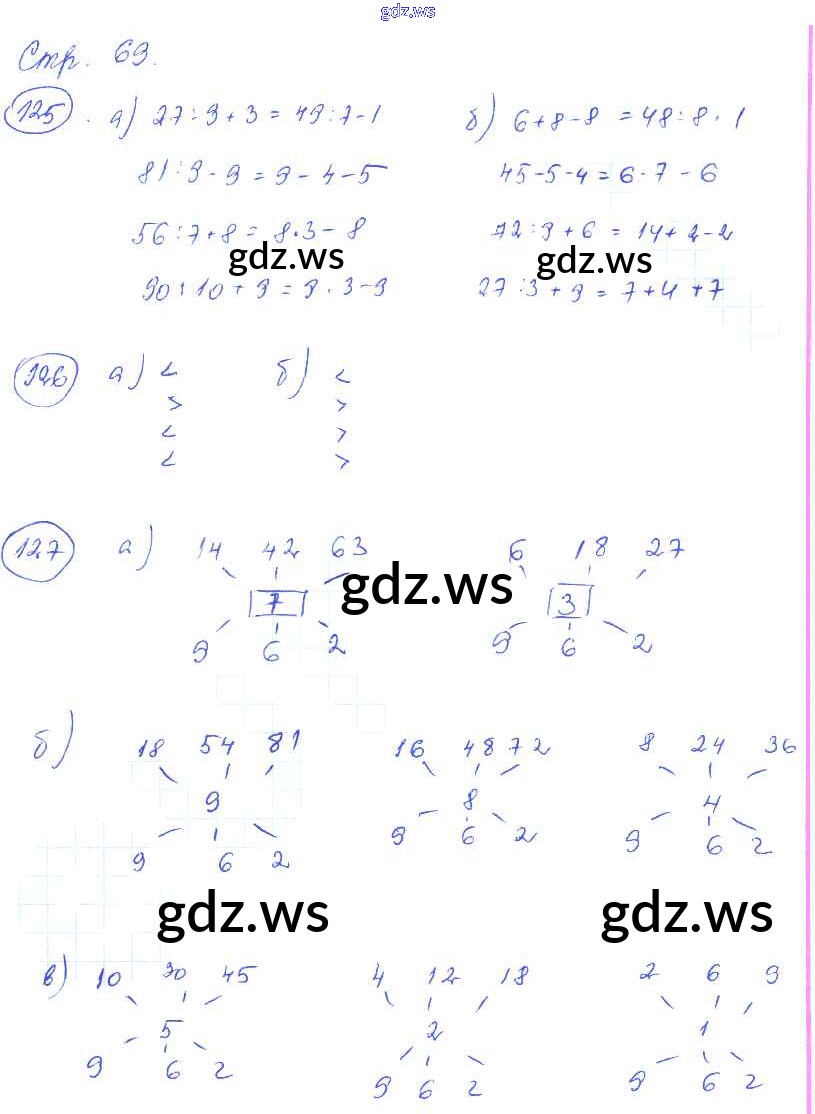 gdz.ws
Стр. 69.
125. а) 27:9+3=49:7-1 б) 6+8-8=48:8·1
81:9-9=9-4-5 45-5-4=6·7-6
56:7+8=8·3-8 72:9+6=14+2-2
gdz.ws gdz.ws
90:10+9=9·3-9 27:3+9=7+4+7
126 а) < б) <
> >
< >
< >
127 а) 14 42 63 6 18 27
7 gdz.ws 3
9 6 2 9 6 2
б) 18 54 81 16 48 72 8 24 36
9 8 4
9 6 2 9 6 2 9 6 2
gdz.ws gdz.ws
в) 10 30 45 4 12 18 2 6 9
5 2 1
9 6 2 9 6 2 9 6 2